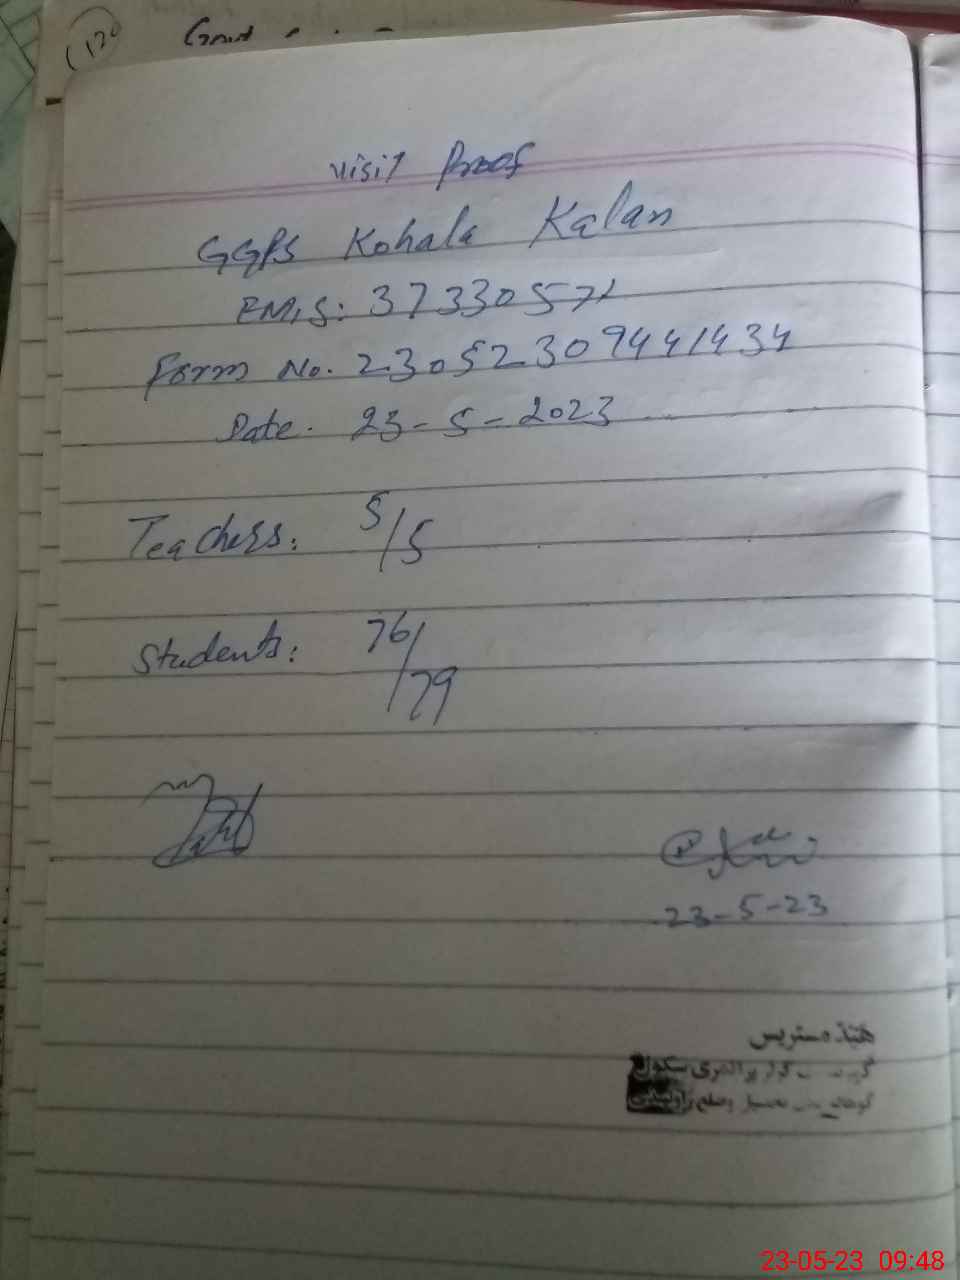 (120
Govt
Visit Proof
GGPS Kohala Kalan
EMIS: 37330571
Form No. 230523099441434
Date. 23-5-2023
Teachers: 5/5
Students: 76/79
23-5-23
ھیڈ مسٹریس
پرائمری سکول
تحصیل و ضلع راولپنڈی
23-05-23 09:48